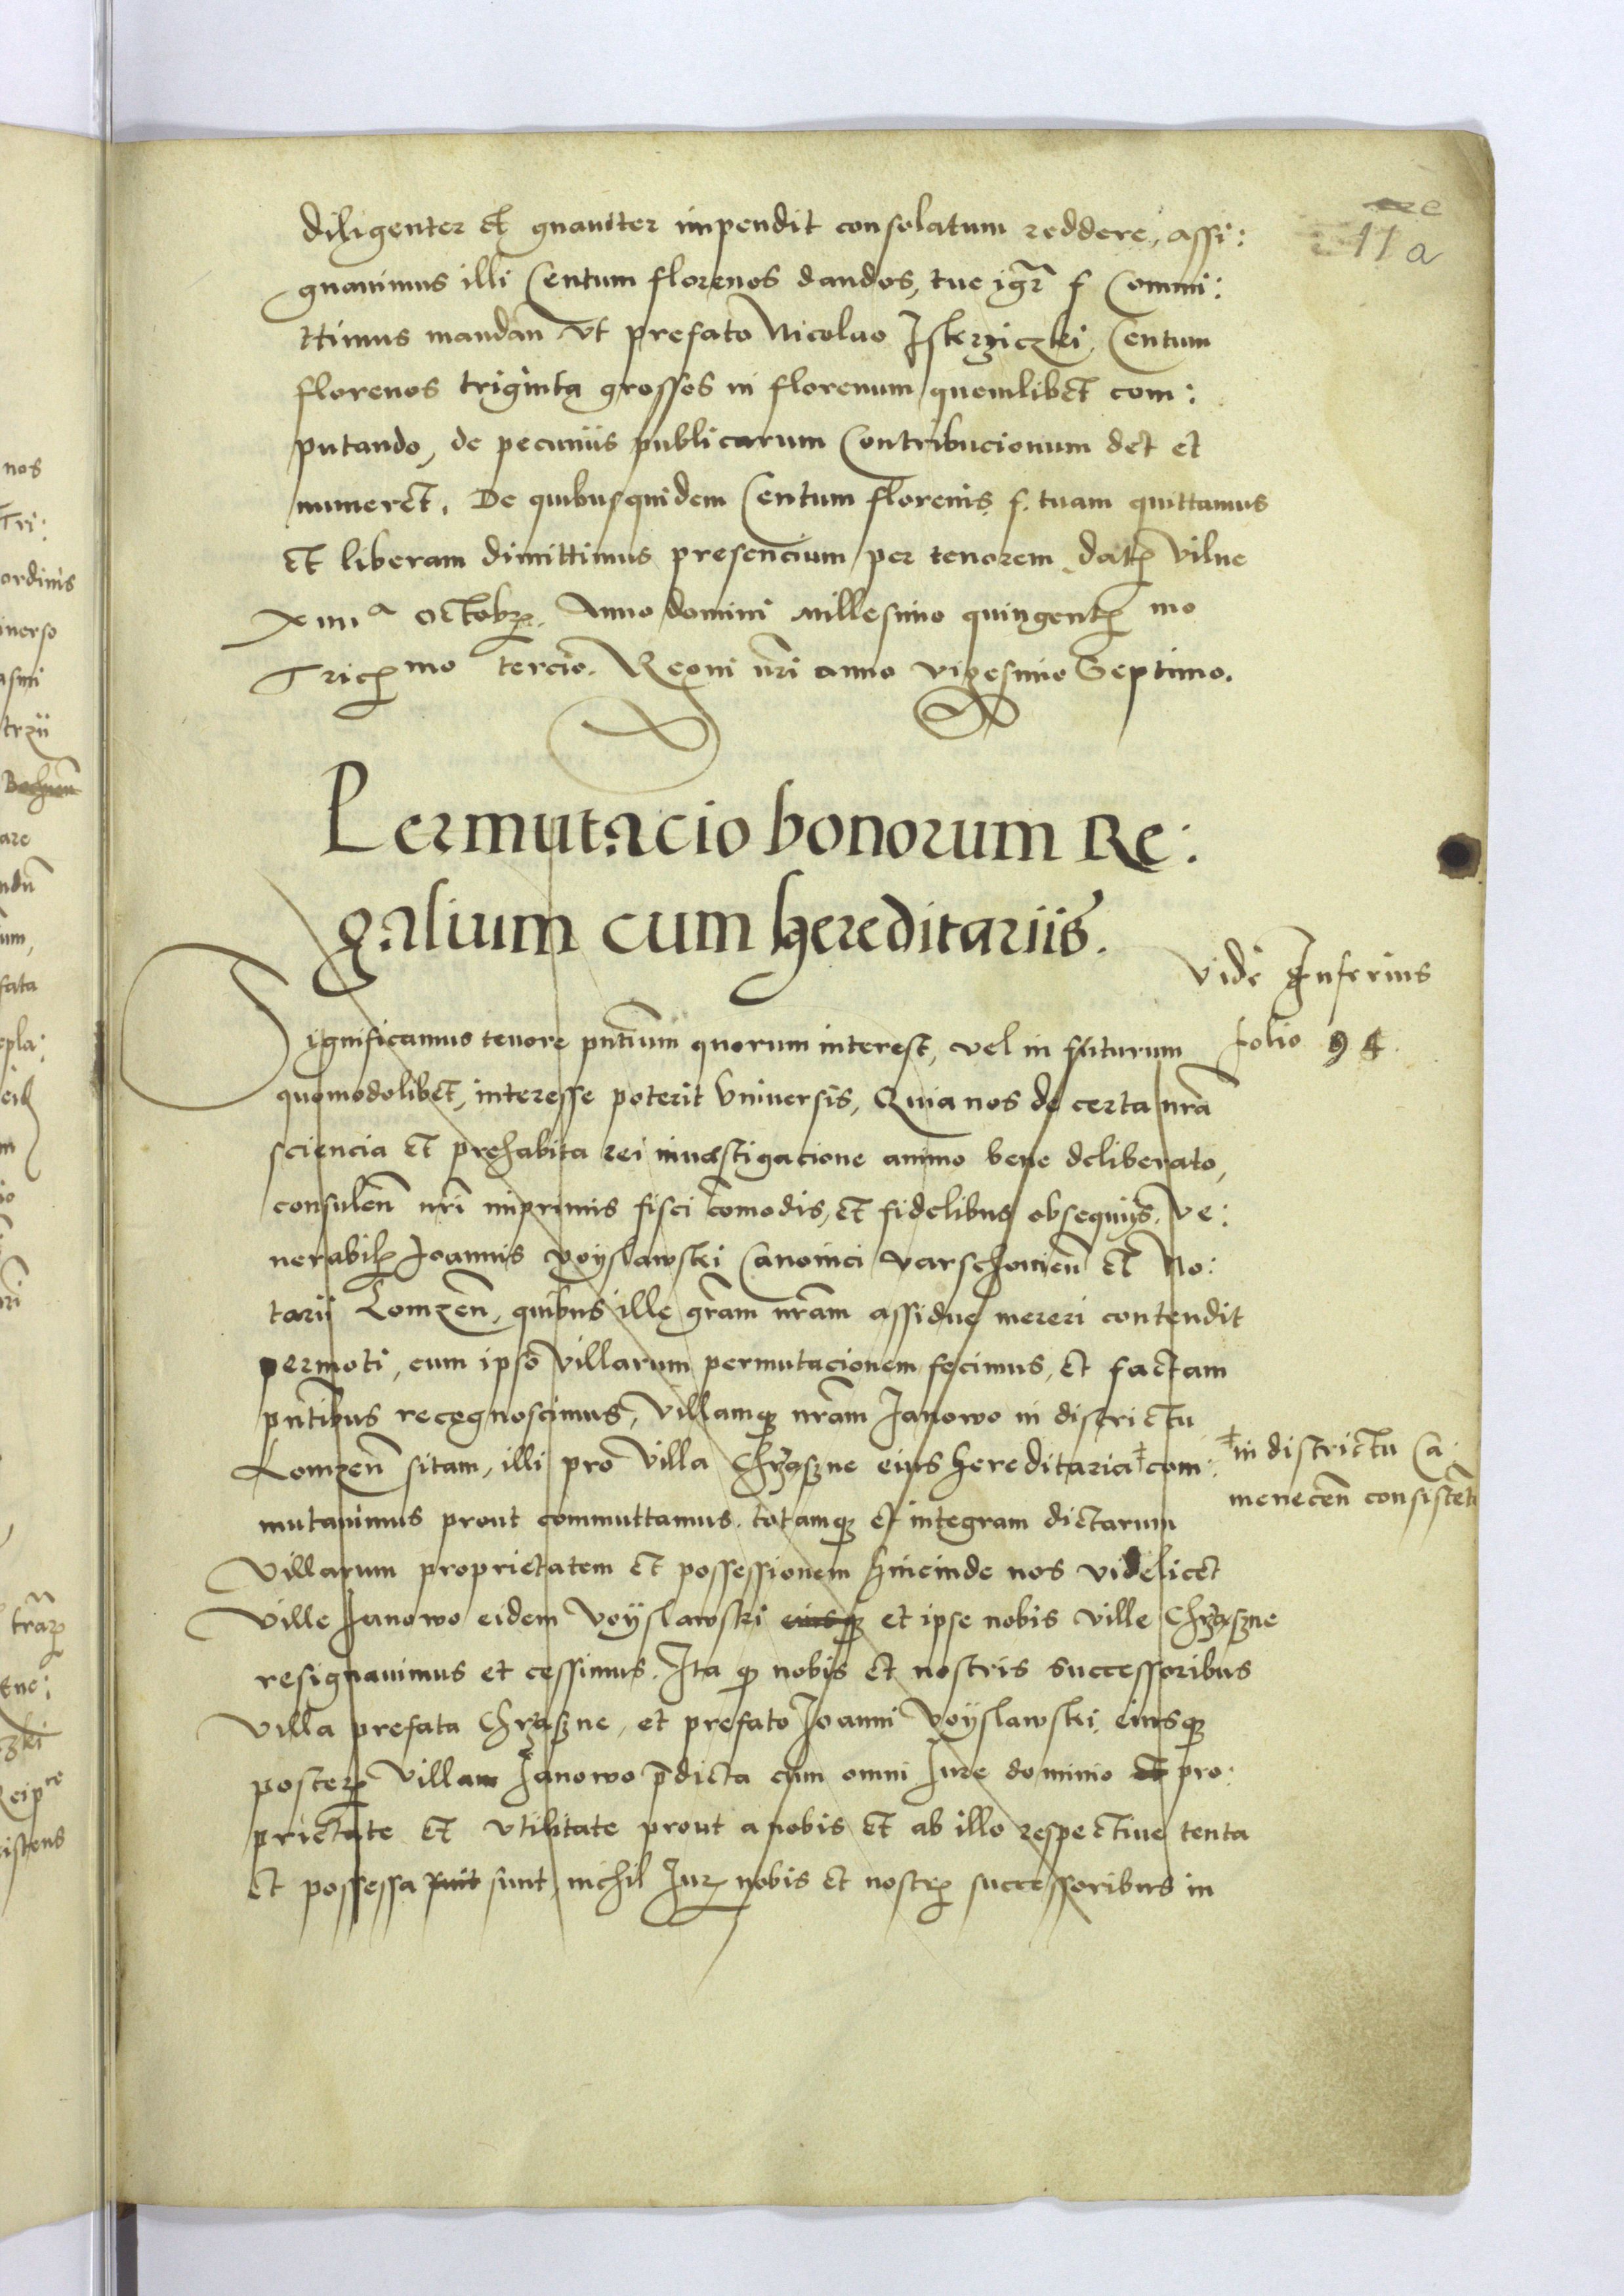 11 a
diligenter et gnaviter impendit consolatum reddere, assi:
gnavimus illi Centum florenos dandos, tue igr̃ f Commi:
ttimus mandañ vt prefato Nicolao Iskrzyczki Centum
florenos triginta grossos in florenum quemlibet com:
putando, de pecuniis publicarum Contribucionum det et
numeret. De quibusquidem Centum florenis f. tuam quittamus
Et liberam dimittimus presencium per tenorem. datꝭ Vilne
Xiiiiᵃ Octobrꝭ. Anno domini Millesimo quingentꝭ mo
Tricꝭ mo tercio. Regni nr̃i anno vigesimo Septimo.
Permutacio bonorum Re:
galium cum hereditariis.
Vide Inferius
folio 94
Significamus tenore pñtium quorum interest, vel in futurum
quomodolibet, interesse poterit Vniversis, Quia nos de certa nr̃a
sciencia Et prehabita rei investigacione animo bene deliberato,
consuleñ nr̃i inprimis fisci com̃odis, et fidelibus obsequiis Ve:
nerabilꝭ Ioannis Voyslawski Canonici Varschovieñ Et No:
tarii Lomzeñ, quibus ille gr̃am nr̃am assidue mereri contendit
permoti, cum ipso villarum permutacionem fecimus, et factam
pñtibus recognoscimus, Villamqꝫ nr̃am Janowo in districtu
Lomzeñ sitam, illi pro villa Chrząszne eius hereditaria ‡ com:
‡ in districtu Ca:
meneceñ consisteñ
mutavimus prout commuttamus. totamqꝫ et integram dictarum
Villarum proprietatem Et possessionem hincinde nos videlicet
Ville Janowo eidem Voyslawski eiusqꝫ et ipse nobis ville Chrząszne
resignavimus et cessimus. Ita qꝫ nobis et nostris successoribus
Villa prefata Chrząszne, et prefato Ioanni Voyslawski eiusqꝫ
posterꝭ Villam Janowo p̃dicta cum omni Iure dominio et pro:
prietate Et Vtilitate prout a nobis Et ab illo respective tenta
et possessa fuit sunt, nichil Iurꝭ nobis et nostrꝭ successoribus in